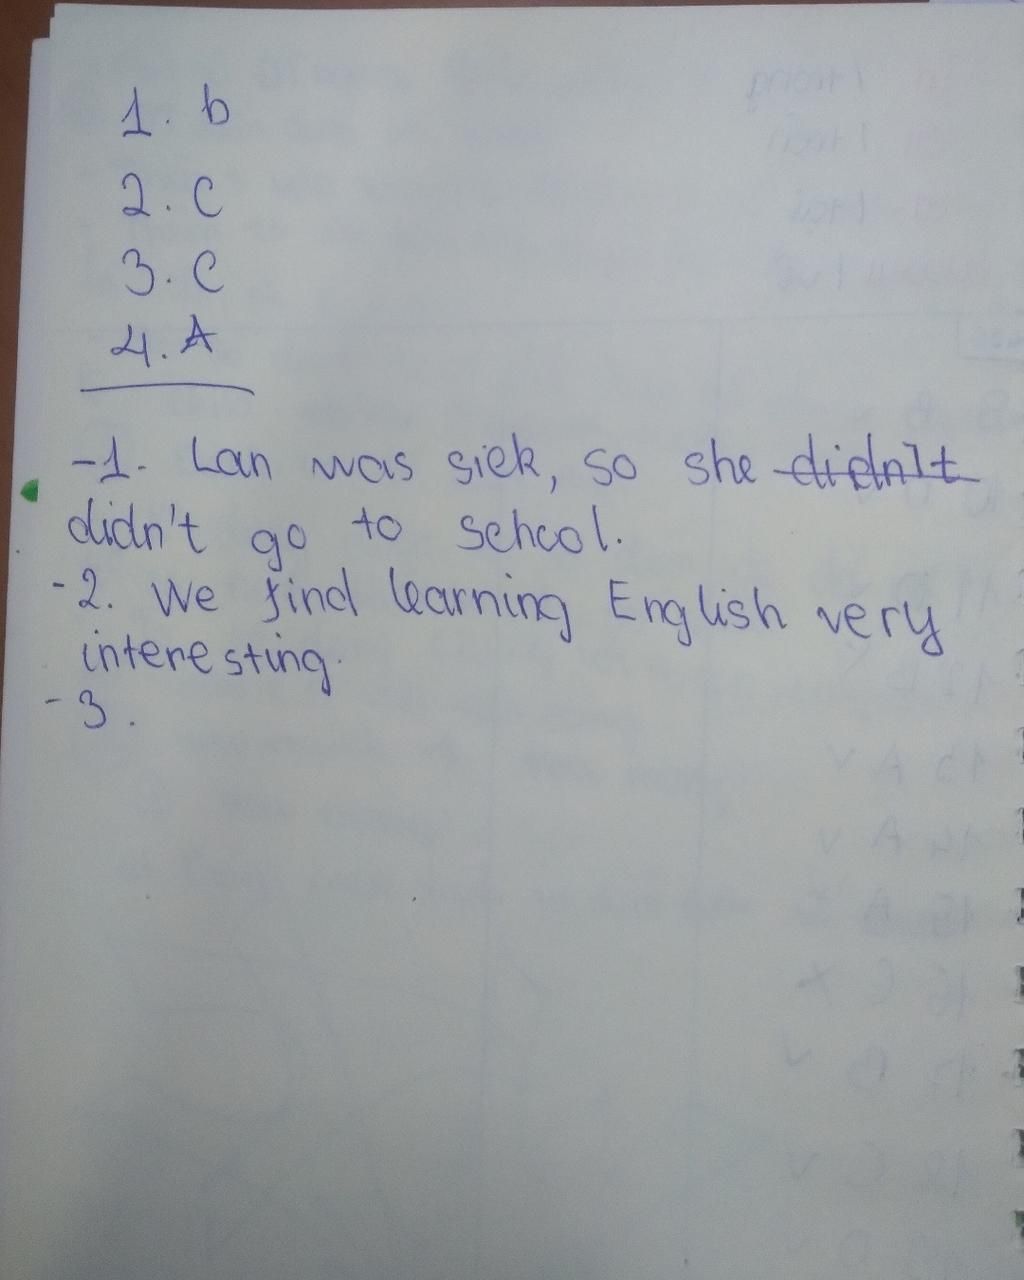 1. b
2. C
3. C
4. A
-1. Lan was sick, so she didn't
didn't go to school.
-2. We find learning English very
interesting.
-3.